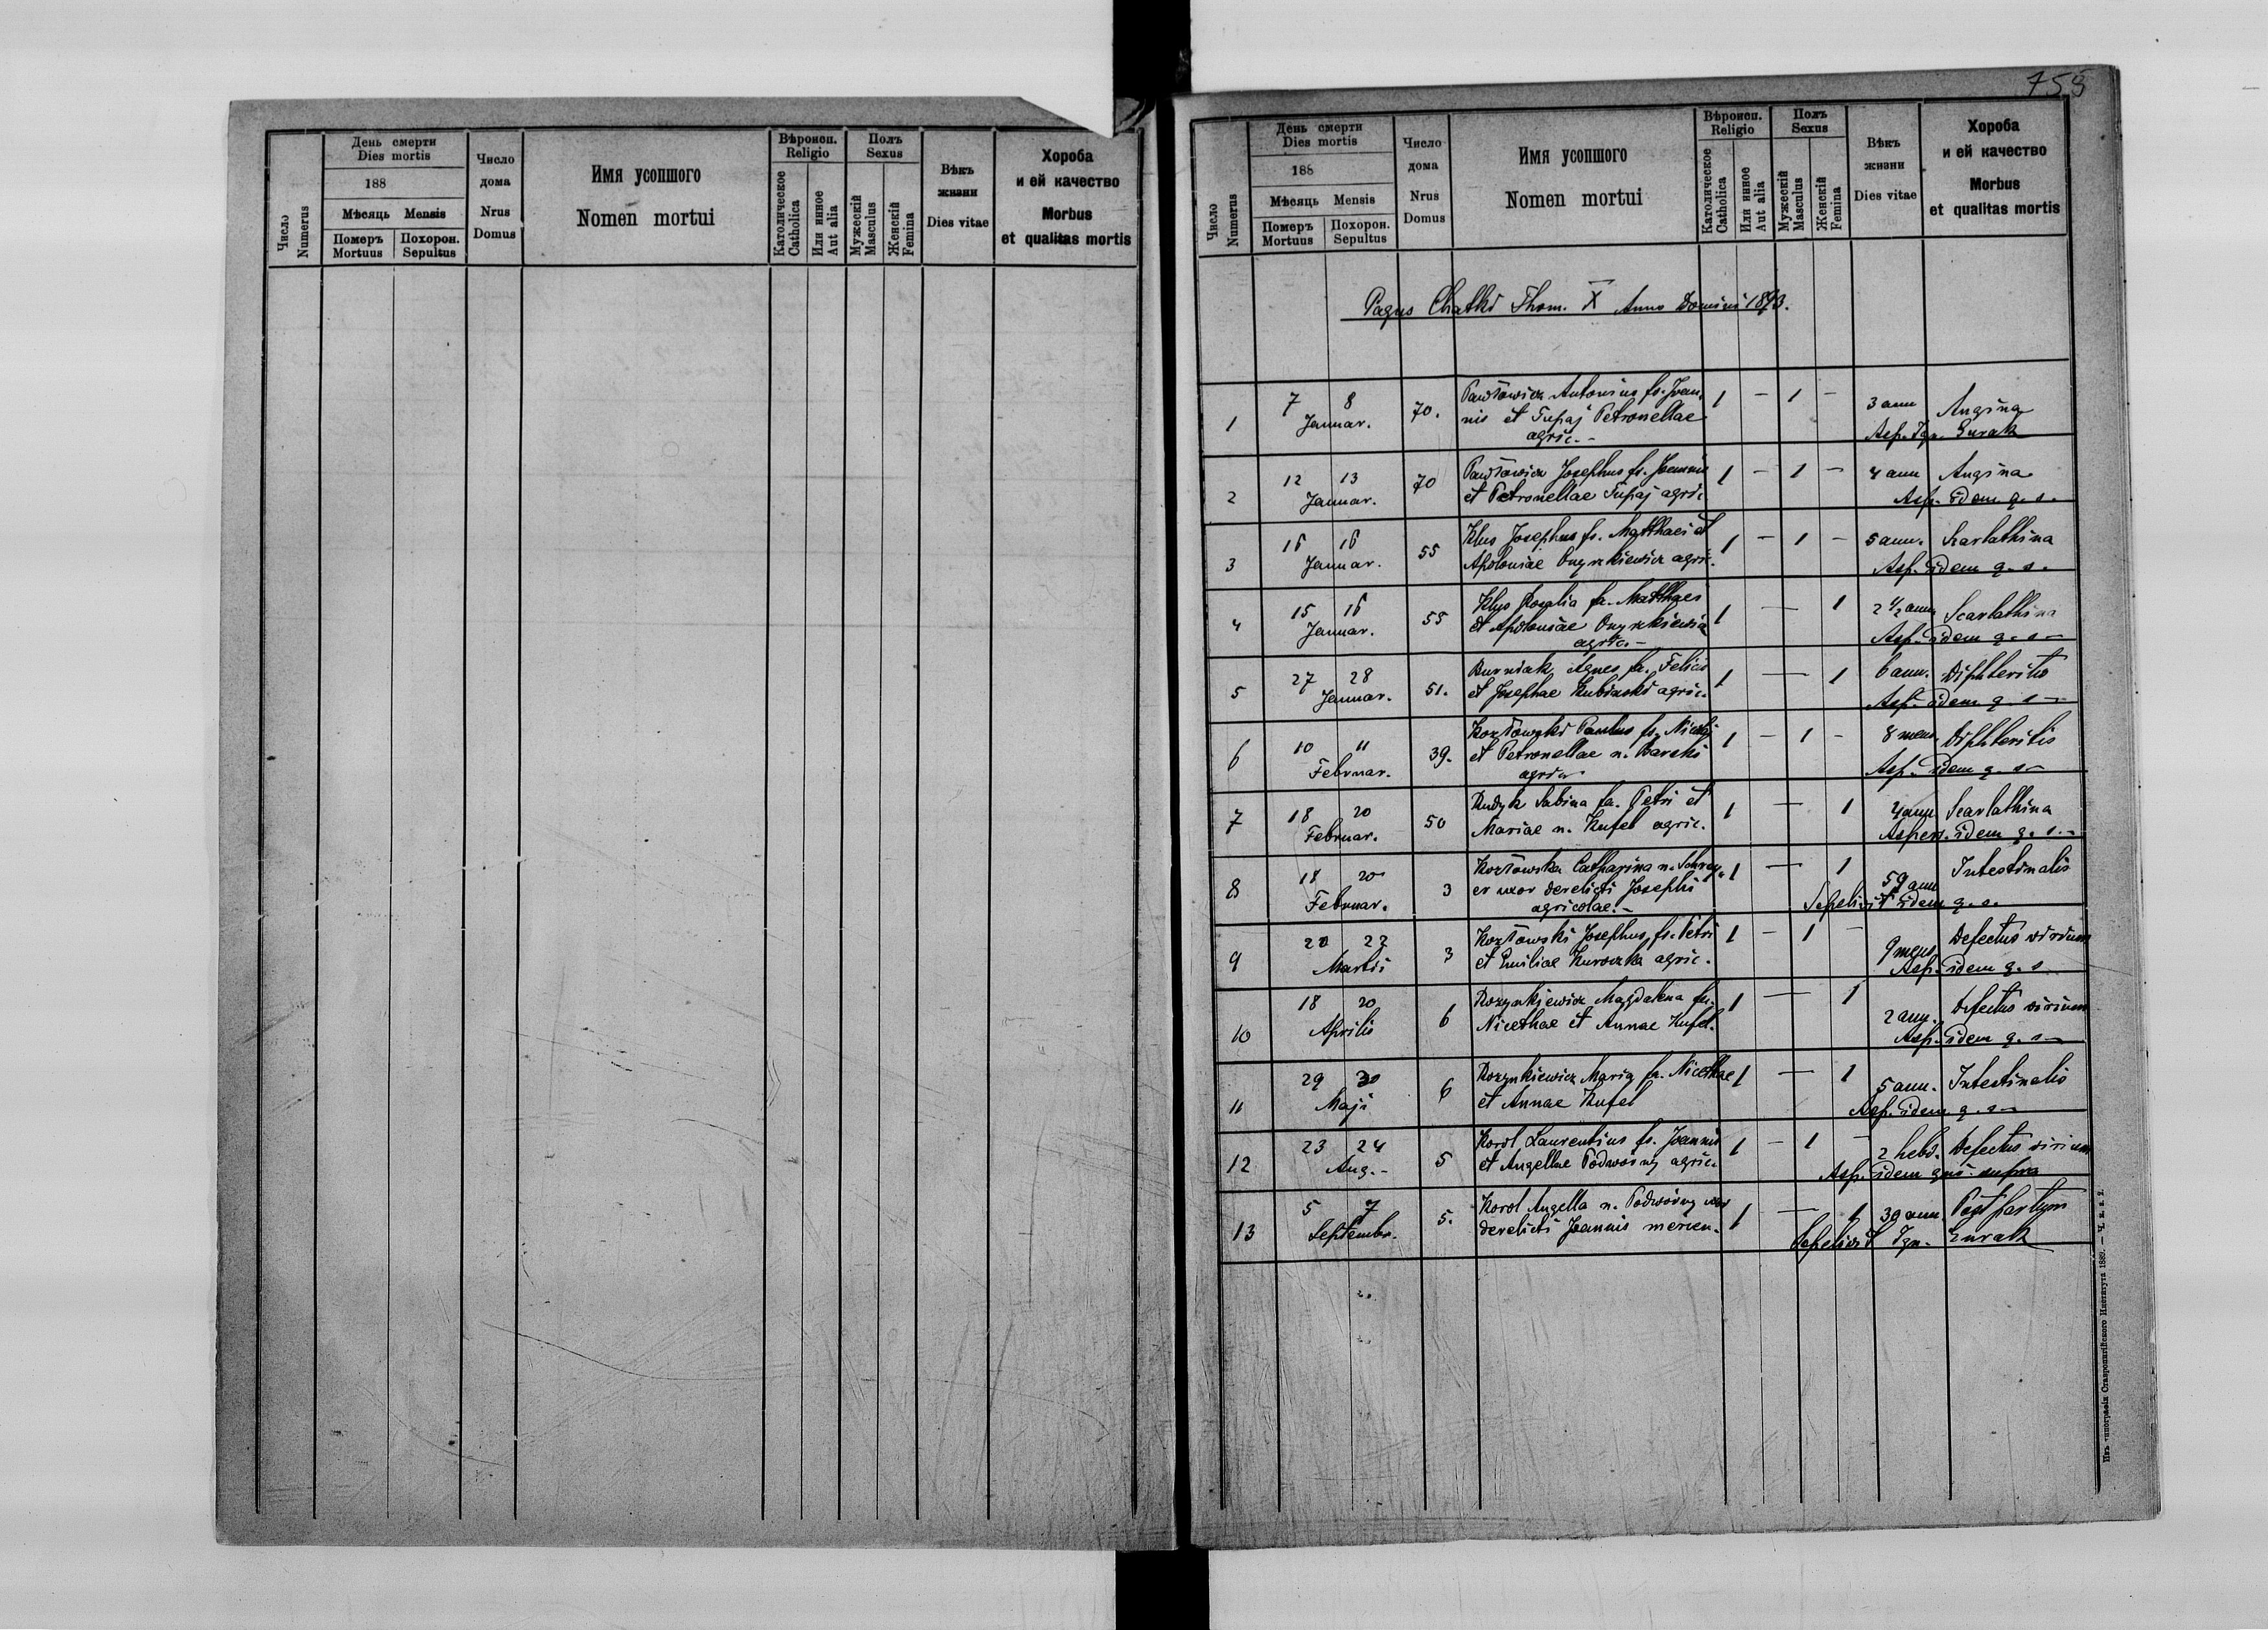 День смерти
Dies mortis
188
Мѣсяць Mensis
Померъ
Mortuus
Похорон.
Sepultus
Число
Numerus
Число
дома
Nrus
Domus
Имя усопшого
Nomen mortui
Вѣроисп.
Religio
Католическое
Catholica
Или инное
Aut alia
Полъ
Sexus
Мужескій
Masculus
Женскій
Femina
Вѣкъ
жизни
Dies vitae
Хороба
и ей качество
Morbus
et qualitas mortis
759
День смерти
Dies mortis
188
Мѣсяць Mensis
Померъ
Mortuus
Похорон.
Sepultus
Число
Numerus
Число
дома
Nrus
Domus
Имя усопшого
Nomen mortui
Вѣроисп.
Religio
Католическое
Catholica
Или инное
Aut alia
Полъ
Sexus
Мужескій
Masculus
Женскій
Femina
Вѣкъ
жизни
Dies vitae
Хороба
и ей качество
Morbus
et qualitas mortis
Pagus Chatki Thom. X Anno Domini 1893.
1 7 8 Januar. 70. Pawłowicz Antonius fs. Joan
nis et Tupaj Petronellae
agric.-
1 - 1 - 3 ann Angina
Asp. Ign. Gurak
2 12 13 Januar. 70 Pawłowicz Josephus fs. Joannis
et Petronellae Tupaj agric
1 - 1 - 4 ann Angina
Asp. idem q. s.
3 15 16 Januar. 55 Klus Josephus fs. Matthaei et
Apoloniae Onyszkiewicz agric.
1 - 1 - 5 ann. Scarlathina
Asp. idem q. s.
4 15 16 Januar. 55 Klus Rosalia fa. Matthaei
et Apoloniae Onyszkiewicz
agric.-
1 — 1 2 1/2 ann. Scarlathina
Asp. idem q. s-
5 27 28 Januar. 51. Burniak Agnes fa. Felicis
et Josephae Kubinski agric.
1 — 1 6 ann. Diphteritis
Asp. idem q. s-
6 10 11 Februar. 39. Kozłowski Paulus fs.
et Petronellae n. Barski
agric.
1 - 1 - 8 mens. Diphteritis
Asp. idem q. s-
7 18 20 Februar. 50 Rudyk Sabina fa. Petri et
Mariae n. Kufel agric.
1 — 1 4 ann Scarlathina
Aspers. idem q. s.-
8 18 20 Februar. 3 Kozłowska Catharina n.
er uxor derelicti Josephi
agricolae.-
1 — 1 59 ann Intestinalis
Sepelivit idem q. s.
9 22 Martii 3 Kozłowski Josephus fs. Petri
et Emiliae Kuroczka agric.
1 - 1 - 9 mens Defectus virium
Asp. idem q. s
10 18 20 Aprilis 6 Rozynkiewicz Magdalena fa.
Nicethae et Annae Kufel.
1 — 1 2 ann. Defectus virium
Asp. idem q. s-
11 29 30 Maji 6 Rozynkiewicz Maria fa. Nicethae
et Annae Kufel
1 — 1 5 ann. Intestinalis
Asp. idem q. s-
12 23 24 Aug.- 5 Korol Laurentius fs. Joannis
et Angellae Podworny agric.
1 - 1 - 2 hebd. Defectus virium
Asp. idem qui supra
13 5 7 Septembr. 5. Korol Angella n. Podworny uxor
derelicti Joannis mercen.
1 — 1 39 ann. Post partum
Sepelivit Ign. Gurak
Изъ типографіи Ставропигійского Института 1889. — Ч. к. л. 2.